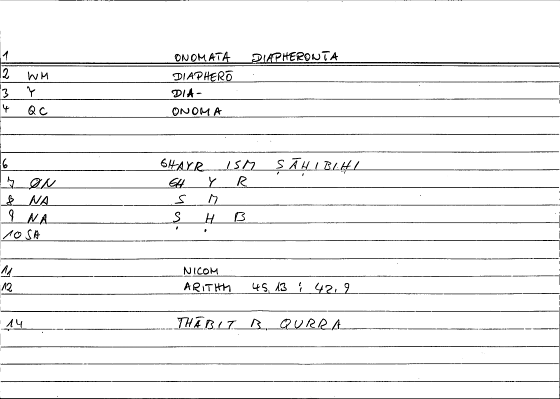 1 ONOMATA DIAPHERONTA
2 WM DIAPHERŌ
3 Y DIA-
4 QC ONOMA
6 GHAYR ISM ṢĀḤIBIHI
7 ØN GH Y R
8 NA S M
9 NA Ṣ Ḥ B
10 SA
11 NICOM
12 ARITHM 45,13 : 42,9
14 THĀBIT B. QURRA